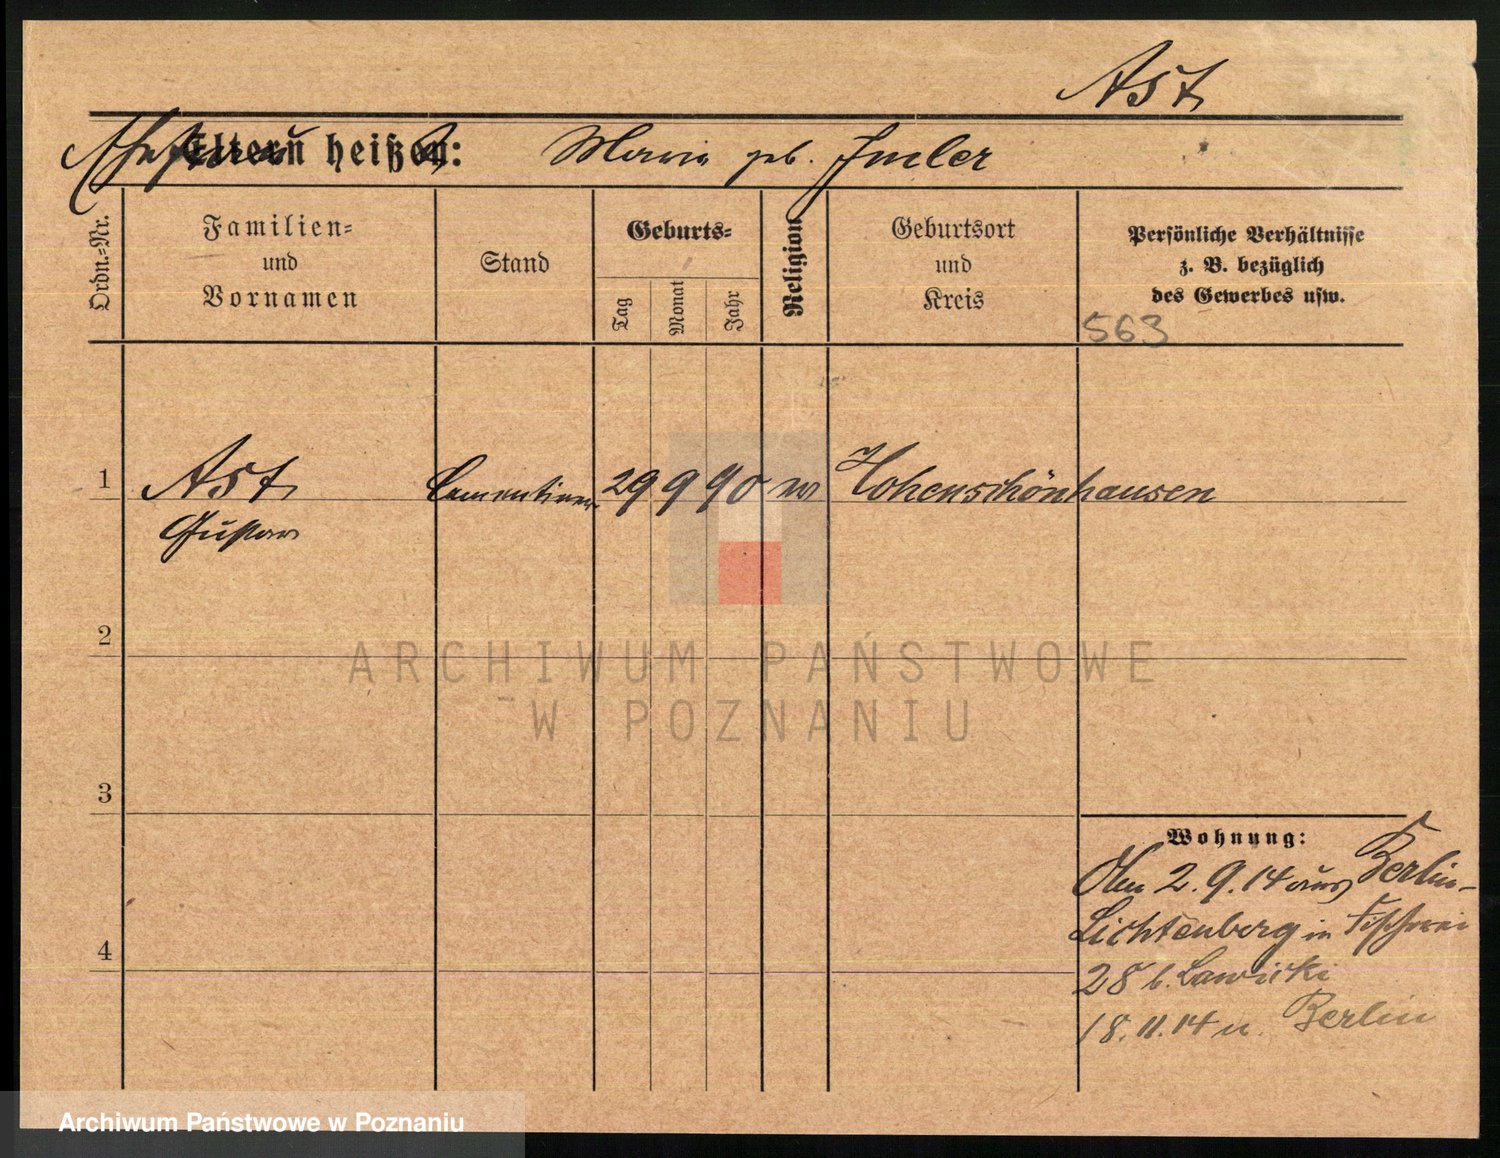 Ast
Ehefrau Eltern heißen: Maria geb. Imler
Ordn.-Nr.
Familien-
und
Vornamen
Stand
Geburts-
Tag
Monat
Jahr
Religion
Geburtsort
und
Kreis
Persönliche Verhältnisse
z. B. bezüglich
des Gewerbes usw.
563
1 Ast Cementirer 29 9 90 Hohenschönhausen
Gustav
2
ARCHIWUM PAŃSTWOWE
W POZNANIU
3
Wohnung:
2.9.14 aus Berlin-
Lichtenberg in Fischerei
4
28 b. Lawicki
18.11.14 n. Berlin
Archiwum Państwowe w Poznaniu